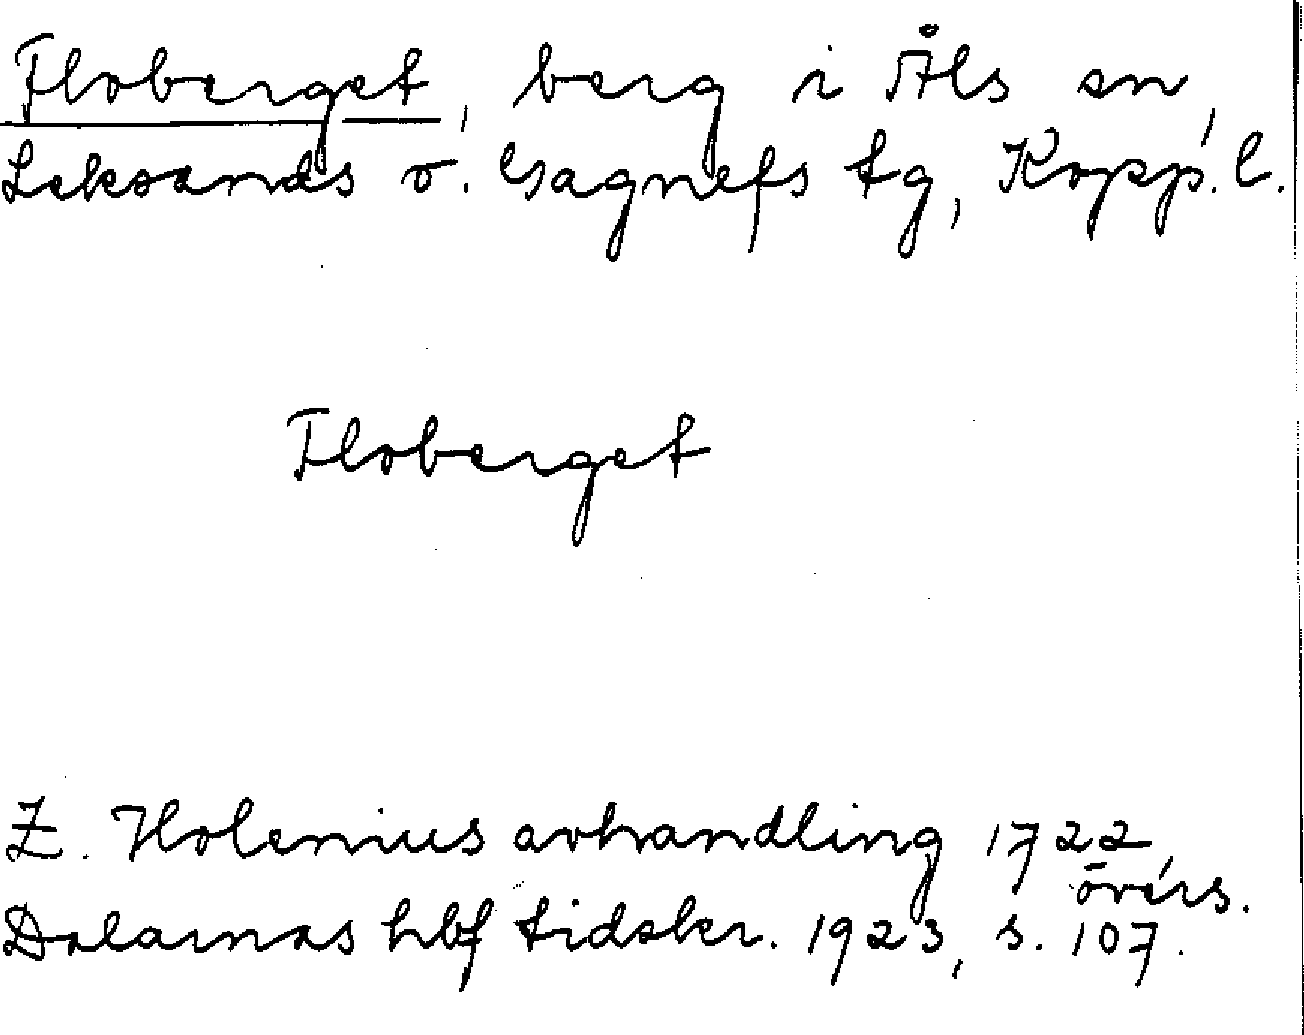 Floberget, berg i Åls sn,
Leksands o. Gagnefs tg, Kopp. l.
Floberget
Z. Holenius avhandling 1722,
övers.
Dalarnas hbf tidskr. 1923, s. 107.